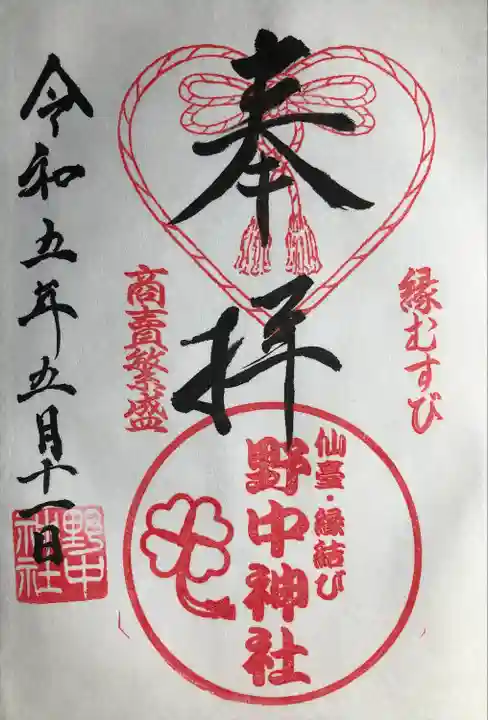 縁むすび
奉拝
商賣繁盛
仙臺・縁結び
野中神社
令和五年五月十一日
野中
神社